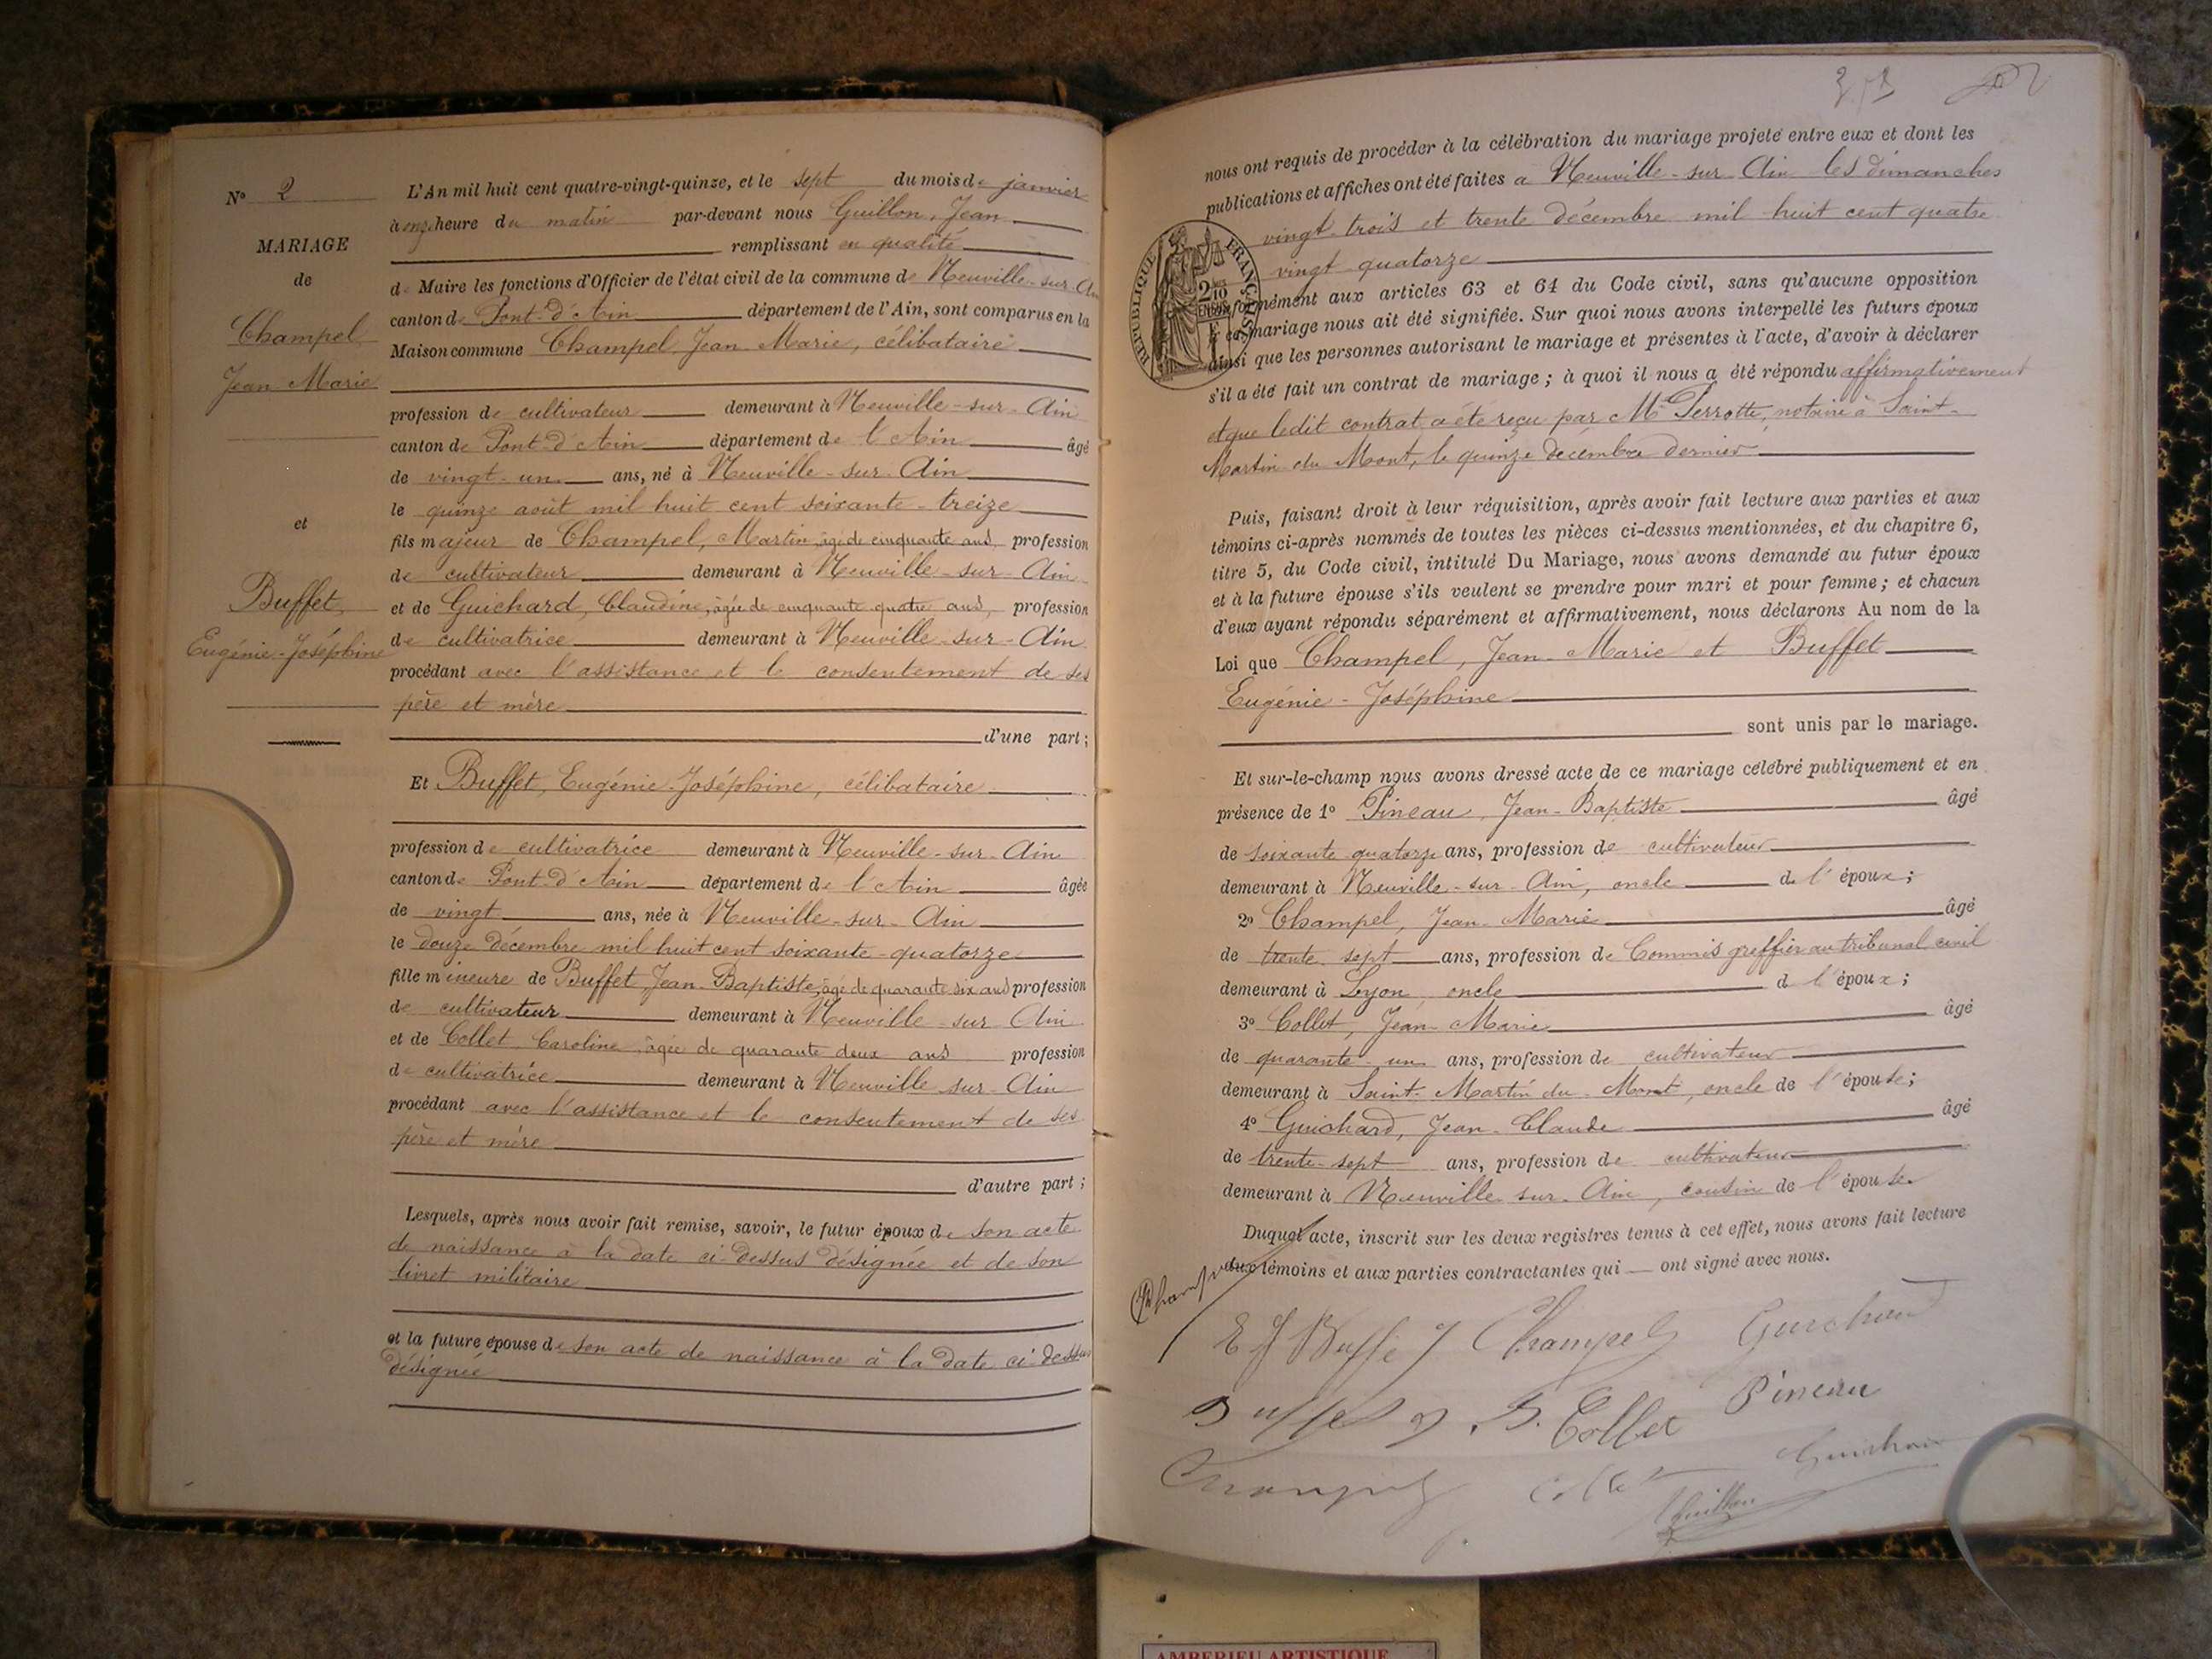 N° 2
MARIAGE
de
Champel
Jean Marie
et
Buffet,
Eugénie-Joséphine
L'An mil huit cent quatre-vingt-quinze, et le sept du mois de janvier
à onze heure du matin par-devant nous Guillon, Jean
remplissant en qualité
de Maire les fonctions d'Officier de l'état civil de la commune de Neuville-sur-Ain
canton de Pont-d'Ain département de l'Ain, sont comparus en la
Maison commune Champel, Jean Marie, célibataire
profession de cultivateur demeurant à Neuville-sur-Ain
canton de Pont-d'Ain département de l'Ain âgé
de vingt-un ans, né à Neuville-sur-Ain
le quinze août mil huit cent soixante-treize
fils majeur de Champel, Martin, âgé de cinquante ans, profession
de cultivateur demeurant à Neuville-sur-Ain
et de Guichard, Claudine, âgée de cinquante quatre ans, profession
de cultivatrice demeurant à Neuville-sur-Ain
procédant avec l'assistance et le consentement de ses
père et mère
d'une part;
Et Buffet, Eugénie-Joséphine, célibataire
profession de cultivatrice demeurant à Neuville-sur-Ain
canton de Pont-d'Ain département de l'Ain âgée
de vingt ans, née à Neuville-sur-Ain
le douze décembre mil huit cent soixante-quatorze
fille mineure de Buffet, Jean-Baptiste, âgé de quarante six ans profession
de cultivateur demeurant à Neuville-sur-Ain
et de Collet, Caroline, âgée de quarante deux ans profession
de cultivatrice demeurant à Neuville-sur-Ain
procédant avec l'assistance et le consentement de ses
père et mère
d'autre part;
Lesquels, après nous avoir fait remise, savoir, le futur époux de son acte
de naissance à la date ci-dessus désignée et de son
livret militaire
et la future épouse de son acte de naissance à la date ci-dessus
désignée
nous ont requis de procéder à la célébration du mariage projeté entre eux et dont les
publications et affiches ont été faites à Neuville-sur-Ain les dimanches
vingt-trois et trente décembre mil huit cent quatre
vingt-quatorze
REPUBLIQUE FRANÇAISE
conformément aux articles 63 et 64 du Code civil, sans qu'aucune opposition
à ce mariage nous ait été signifiée. Sur quoi nous avons interpellé les futurs époux
ainsi que les personnes autorisant le mariage et présentes à l'acte, d'avoir à déclarer
s'il a été fait un contrat de mariage; à quoi il nous a été répondu affirmativement
et que ledit contrat a été reçu par Me Perrotte, notaire à Saint-
Martin du Mont, le quinze décembre dernier
Puis, faisant droit à leur réquisition, après avoir fait lecture aux parties et aux
témoins ci-après nommés de toutes les pièces ci-dessus mentionnées, et du chapitre 6,
titre 5, du Code civil, intitulé Du Mariage, nous avons demandé au futur époux
et à la future épouse s'ils veulent se prendre pour mari et pour femme; et chacun
d'eux ayant répondu séparément et affirmativement, nous déclarons Au nom de la
Loi que Champel, Jean-Marie et Buffet
Eugénie-Joséphine
sont unis par le mariage.
Et sur-le-champ nous avons dressé acte de ce mariage célébré publiquement et en
présence de 1° Pineau, Jean-Baptiste âgé
de soixante quatorze ans, profession de cultivateur
demeurant à Neuville-sur-Ain, oncle de l'époux;
2° Champel, Jean-Marie âgé
de trente sept ans, profession de Commis greffier au tribunal civil
demeurant à Lyon, oncle de l'époux;
3° Collet, Jean-Marie âgé
de quarante-un ans, profession de cultivateur
demeurant à Saint-Martin du Mont, oncle de l'épouse;
4° Guichard, Jean-Claude âgé
de trente-sept ans, profession de cultivateur
demeurant à Neuville-sur-Ain, cousin de l'épouse
Duquel acte, inscrit sur les deux registres tenus à cet effet, nous avons fait lecture
aux témoins et aux parties contractantes qui ont signé avec nous.
E J Buffe J Champel Guichard
Collet Pineau
Guillon
AMBERIEU ARTISTIQUE